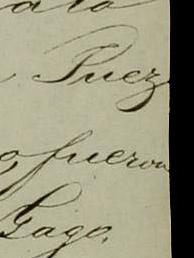 ata
Puez
o, fueron
Gago.